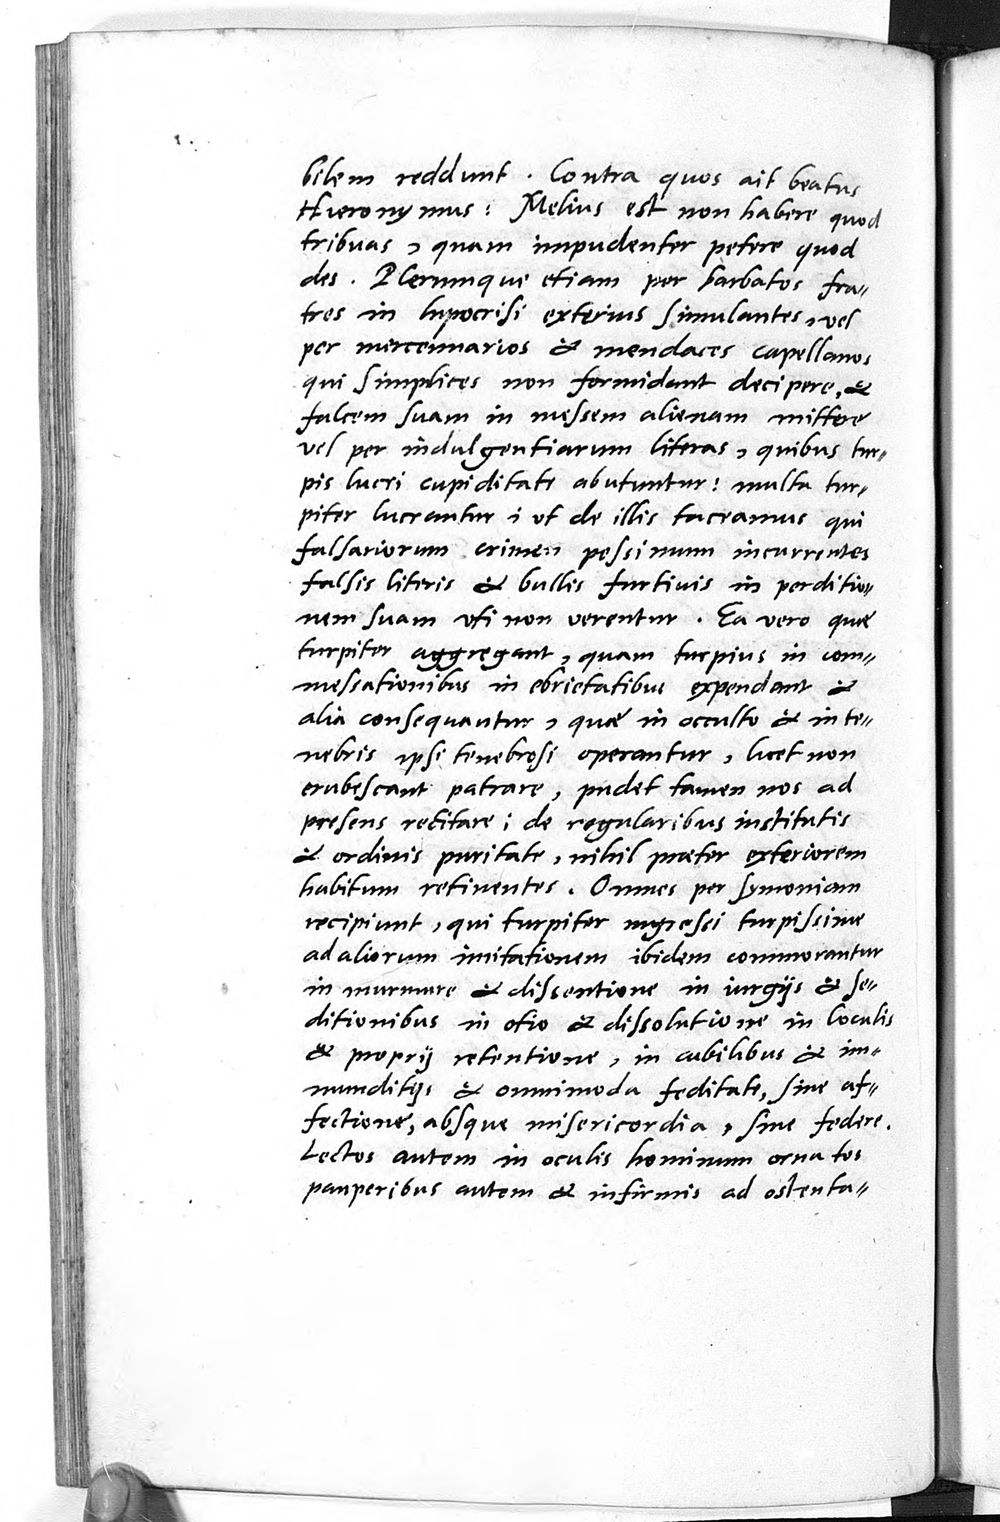 bilem reddunt . Contra quos ait beatus
Hieronymus : Melius est non habere quod
tribuas , quam impudenter petere quod
des . Plerumque etiam per barbatos fra-
tres in hypocrisi exterius simulantes , vel
per mercennarios & mendaces capellanos
qui simplices non formidant decipere, &
falcem suam in messem alienam mittere
vel per indulgentiarum literas , quibus tur-
pis lucri cupiditate abutuntur : multa tur-
piter lucrantur ; ut de illis taceamus qui
falsariorum crimen pessimum incurrentes
falsis literis & bullis furtivis in perditio-
nem suam uti non verentur . Ea vero quæ
turpiter aggregant , quam turpius in com-
messationibus in ebrietatibus expendant &
alia consequantur , quæ in occulto & in te-
nebris ipsi tenebrosi operantur , licet non
erubescant patrare , pudet tamen nos ad
presens recitare ; de regularibus institutis
& ordinis puritate , nihil præter exteriorem
habitum retinentes . Omnes per symoniam
recipiunt , qui turpiter ingressi turpissime
ad aliorum imitationem ibidem commorantur
in murmure & dissentione in iurgijs & se-
ditionibus in otio & dissolutione in loculis
& proprij retentione , in cubilibus & im-
munditijs & omnimoda feditate, sine af-
fectione, absque misericordia , sine federe.
Lectos autem in oculis hominum ornatos
pauperibus autem & infirmis ad ostenta-